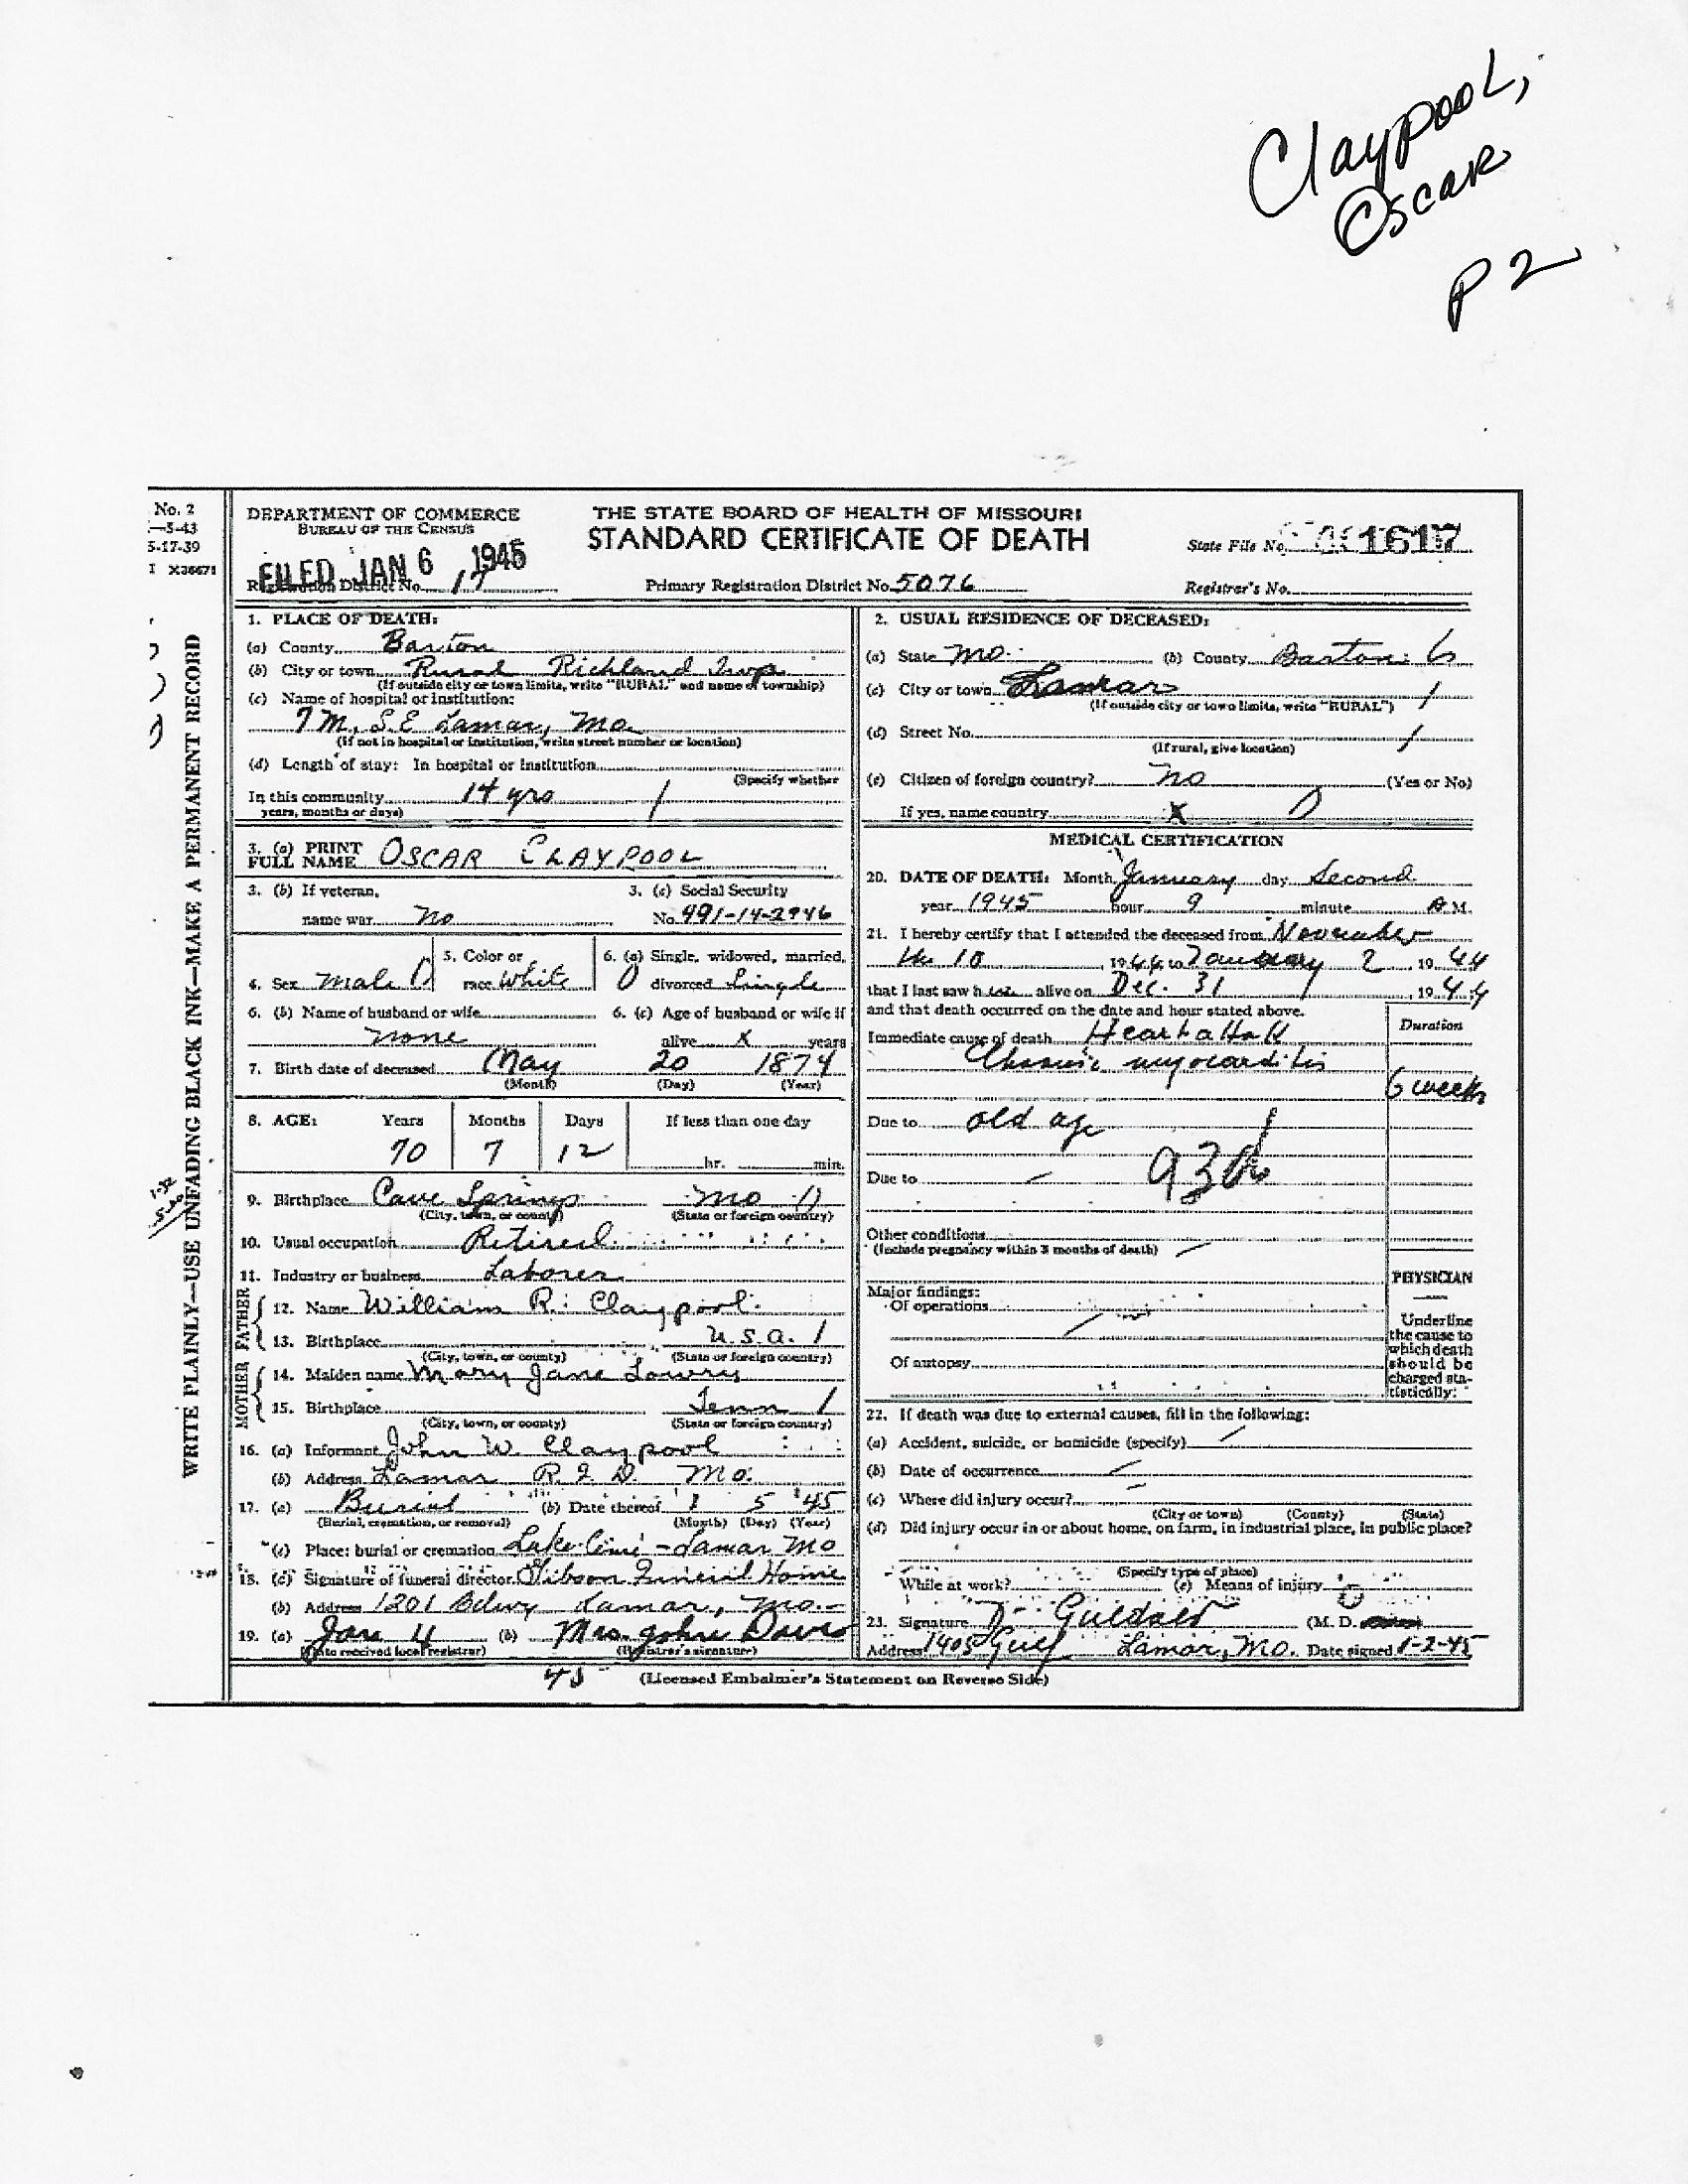 Claypool,
Oscar
P 2
No. 2
-5-43
5-17-39
I X36671
DEPARTMENT OF COMMERCE
BUREAU OF THE CENSUS
THE STATE BOARD OF HEALTH OF MISSOURI
STANDARD CERTIFICATE OF DEATH
State File No. 1617
FILED JAN 6 1945
Registration District No. 17
Primary Registration District No. 5076
Registrar's No.
WRITE PLAINLY—USE UNFADING BLACK INK—MAKE A PERMANENT RECORD
1. PLACE OF DEATH:
(a) County Barton
(b) City or town Rural Richland Twp
(If outside city or town limits, write "RURAL" and name of township)
(c) Name of hospital or institution:
7 M. S.E Lamar, Mo
(If not in hospital or institution, write street number or location)
(d) Length of stay: In hospital or institution
(Specify whether
In this community 14 yrs /
years, months or days)
2. USUAL RESIDENCE OF DECEASED:
(a) State Mo. (b) County Barton 6
(c) City or town Lamar /
(If outside city or town limits, write "RURAL")
(d) Street No. /
(If rural, give location)
(e) Citizen of foreign country? no (Yes or No)
If yes, name country x 0
3. (a) PRINT
FULL NAME OSCAR CLAYPOOL
3. (b) If veteran,
name war no
3. (c) Social Security
No. 491-14-2946
4. Sex Male 5. Color or
race White
6. (a) Single, widowed, married,
divorced Single
6. (b) Name of husband or wife
none
6. (c) Age of husband or wife if
alive x years
7. Birth date of deceased May 20 1874
(Month) (Day) (Year)
8. AGE: Years Months Days If less than one day
70 7 12 hr. min.
9. Birthplace Cave Springs Mo
(City, town, or county) (State or foreign country)
10. Usual occupation Retired
11. Industry or business Laborer
FATHER
12. Name William R. Claypool
13. Birthplace U.S.A. /
(City, town, or county) (State or foreign country)
MOTHER
14. Maiden name Mary Jane Lowry
15. Birthplace Tenn /
(City, town, or county) (State or foreign country)
16. (a) Informant John W. Claypool
(b) Address Lamar R.F.D. Mo.
17. (a) Burial (b) Date thereof 1 5 '45
(Burial, cremation, or removal) (Month) (Day) (Year)
(c) Place: burial or cremation Lake Cem - Lamar Mo
18. (a) Signature of funeral director Gibson Funeral Home
(b) Address 1201 Lamar, Mo.
19. (a) Jan 4 (b) Mrs. John Davis
(Date received local registrar) (Registrar's signature)
45
(Licensed Embalmer's Statement on Reverse Side)
MEDICAL CERTIFICATION
20. DATE OF DEATH: Month January day Second
year 1945 hour 9 minute A.M.
21. I hereby certify that I attended the deceased from November
the 10, 1944 to January 2, 1944
that I last saw h alive on Dec. 31, 1944
and that death occurred on the date and hour stated above.
Duration
Immediate cause of death Heart attack
Chronic myocarditis
6 weeks
Due to old age
Due to
Other conditions
(Include pregnancy within 3 months of death)
Major findings:
Of operations
Of autopsy
PHYSICIAN
Underline
the cause to
which death
should be
charged sta-
tistically.
22. If death was due to external causes, fill in the following:
(a) Accident, suicide, or homicide (specify)
(b) Date of occurrence
(c) Where did injury occur?
(City or town) (County) (State)
(d) Did injury occur in or about home, on farm, in industrial place, in public place?
(Specify type of place)
While at work? (e) Means of injury
23. Signature (M. D.
Address 1405 Gulf Lamar, Mo. Date signed 1-2-45